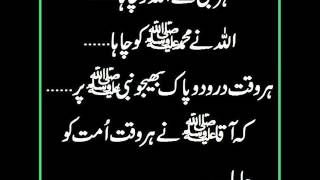 اللہ نے محمد ﷺ کو چاہا......
ہر وقت درود و پاک بھیجو نبی ﷺ پر......
کہ آقا ﷺ نے ہر وقت اُمت کو